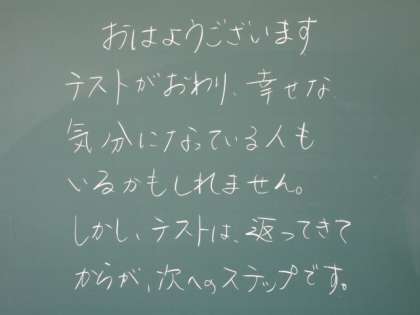 おはようございます
テストがおわり、幸せな
気分になっている人も
いるかもしれません。
しかし、テストは、返ってきて
からが、次へのステップです。